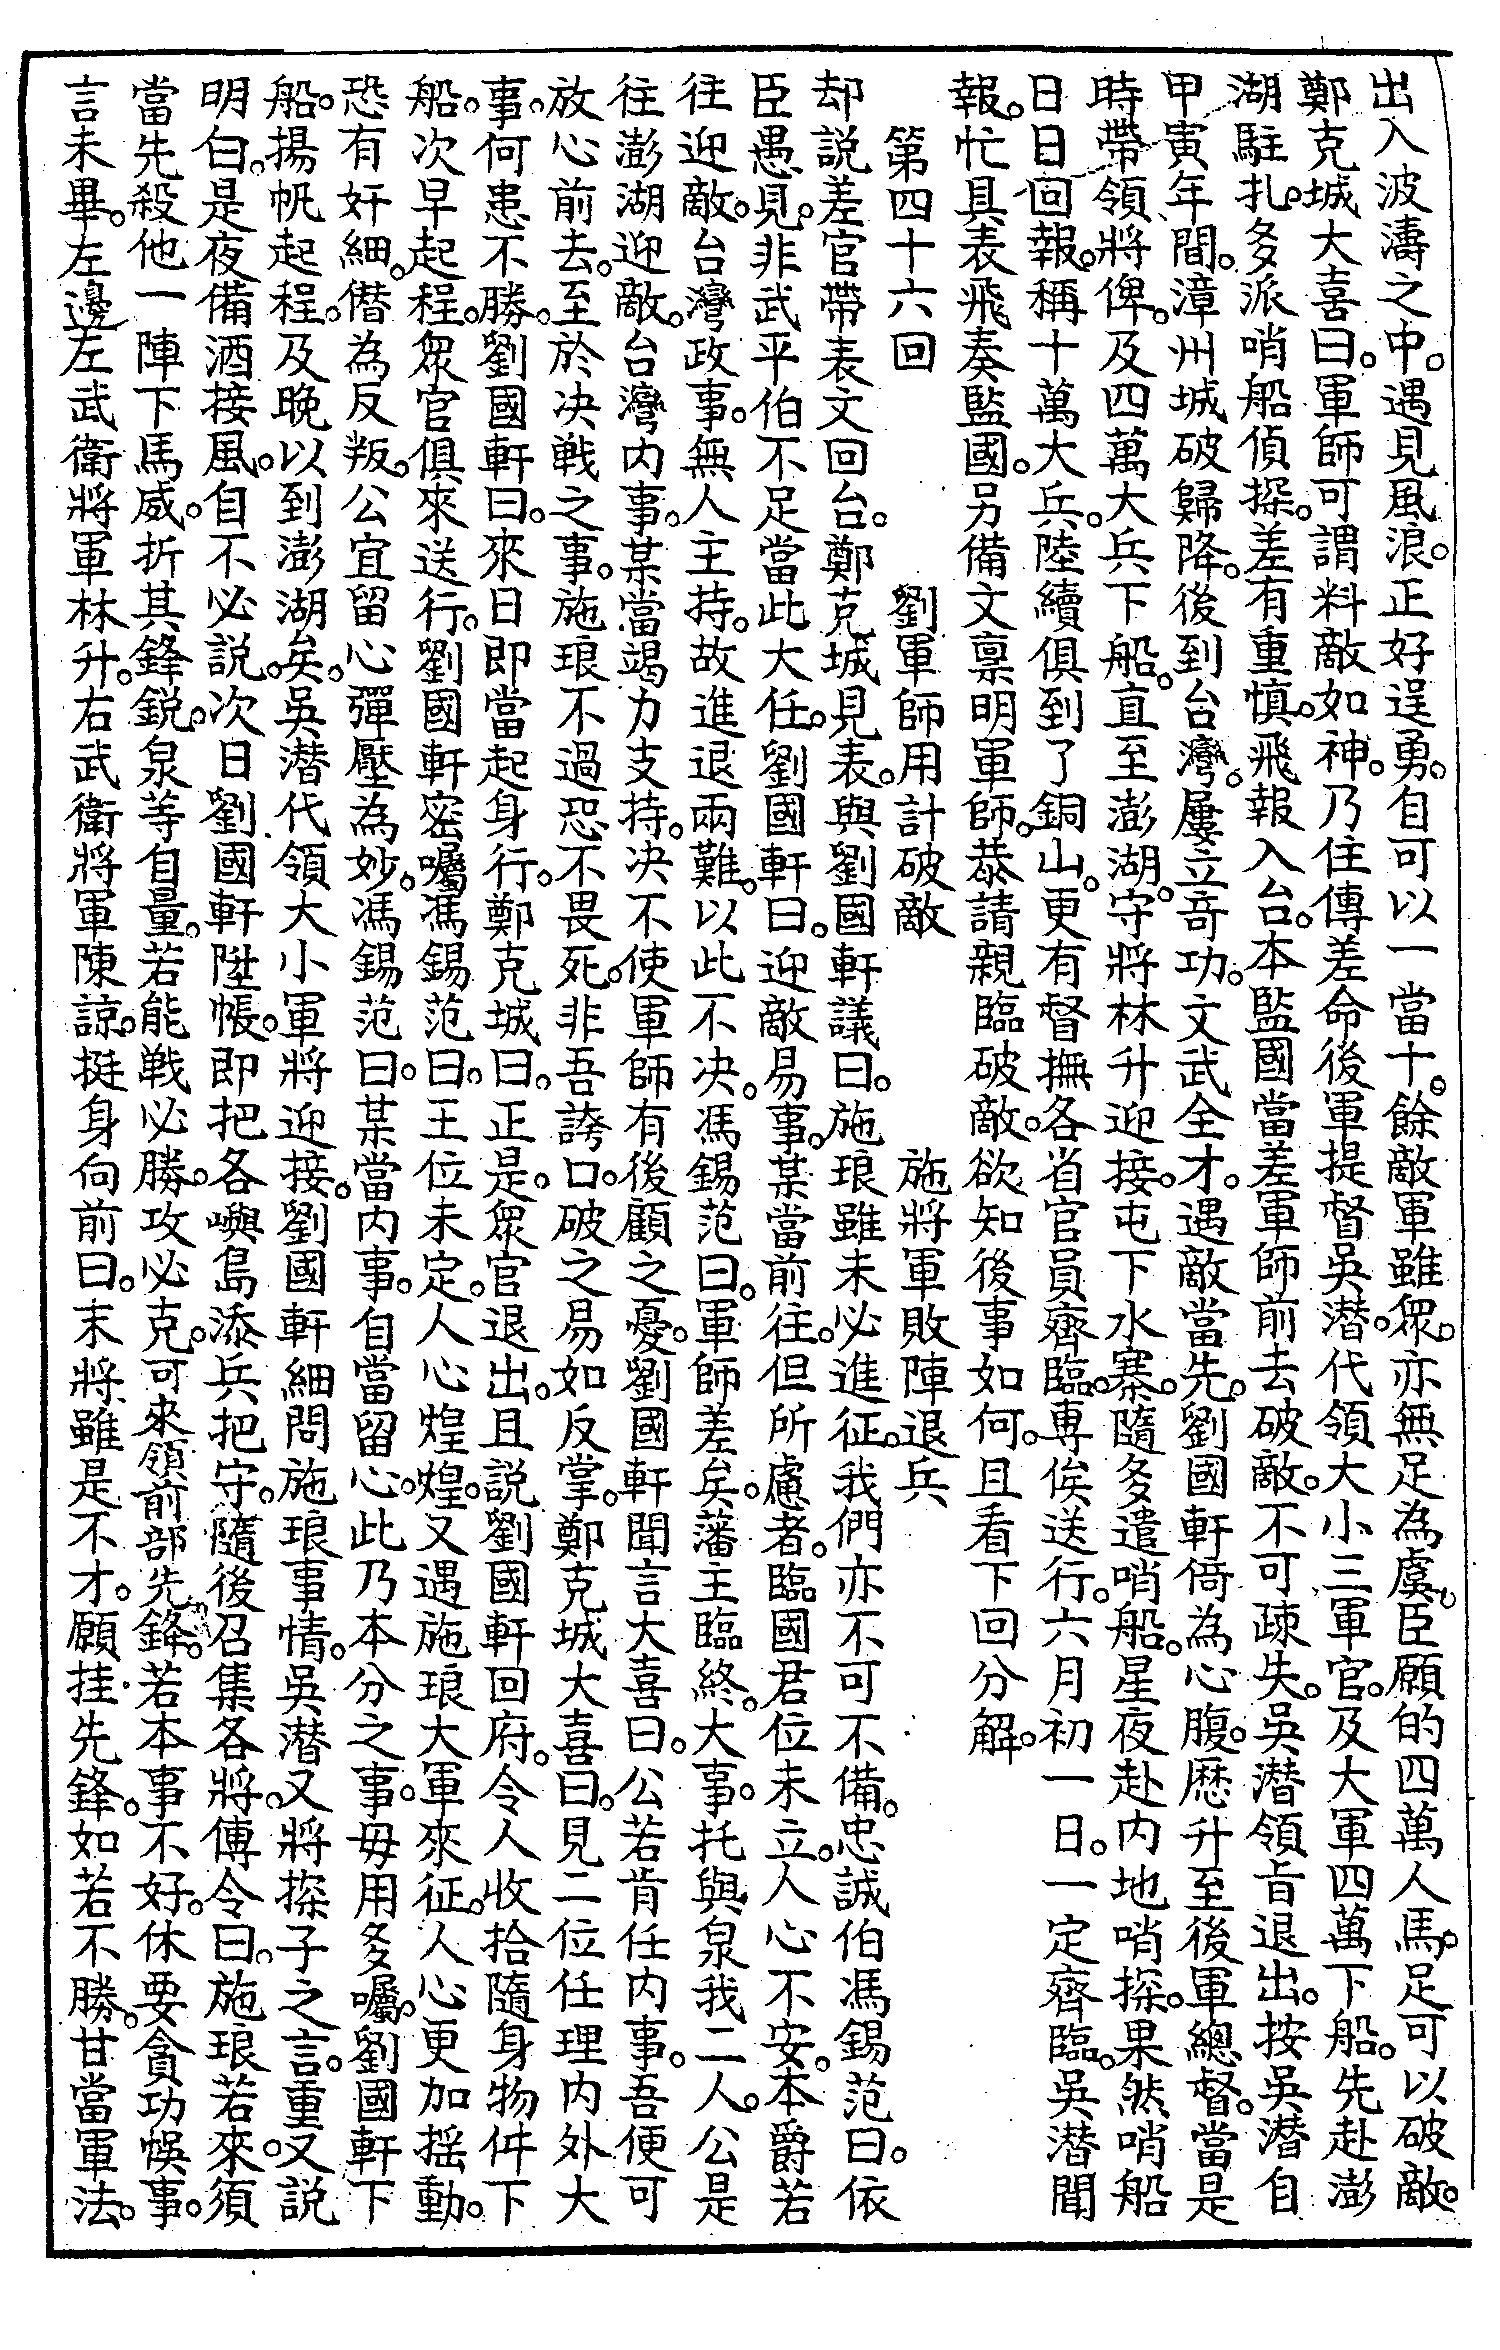 出入波濤之中。遇見風浪。正好逞勇。自可以一當十。餘敵軍雖衆。亦無足為虞。臣願的四萬人馬。足可以破敵。
鄭克城大喜曰。軍師可謂料敵如神。乃住傳差命後軍提督吳潜。代領大小三軍官。及大軍四萬下船。先赴澎
湖駐扎。多派哨船偵探。差有重慎。飛報入台。本監國當差軍師前去破敵。不可疎失。吳潜領旨退出。按吳潜自
甲寅年間。漳州城破歸降。後到台灣。屢立竒功。文武全才。遇敵當先。劉國軒倚為心腹。歷升至後軍總督。當是
時帶領將俾。及四萬大兵下船。直至澎湖。守將林升迎接。屯下水寨。隨多遣哨船。星夜赴内地哨探。果然哨船
日日回報。稱十萬大兵。陸續俱到了銅山。更有督撫各省官員齊臨。專俟送行。六月初一日。一定齊臨。吳潜聞
報。忙具表飛奏監國。另備文禀明軍師。恭請親臨破敵。欲知後事如何。且看下回分解。
第四十六回　　劉軍師用計破敵　　施將軍敗陣退兵
却説差官帶表文回台。鄭克城見表。與劉國軒議曰。施琅雖未必進征。我們亦不可不備。忠誠伯馮錫范曰。依
臣愚見。非武平伯不足當此大任。劉國軒曰。迎敵易事。某當前往。但所慮者。臨國君位未立。人心不安。本爵若
往迎敵。台灣政事。無人主持。故進退兩難。以此不决。馮錫范曰。軍師差矣。藩主臨終。大事托與泉我二人。公是
往澎湖迎敵。台灣内事。某當竭力支持。决不使軍師有後顧之憂。劉國軒聞言大喜曰。公若肯任内事。吾便可
放心前去。至於决戦之事。施琅不過恐不畏死。非吾誇口。破之易如反掌。鄭克城大喜曰。見二位任理内外大
事。何患不勝。劉國軒曰。來日即當起身行。鄭克城曰。正是。衆官退出。且説劉國軒回府。令人收拾隨身物件下
船。次早起程。衆官俱來送行。劉國軒密囑馮錫范曰。王位未定。人心煌煌。又遇施琅大軍來征。人心更加摇動。
恐有奸細。僭為反叛。公宜留心彈壓為妙。馮錫范曰。某當内事。自當留心。此乃本分之事。毋用多囑。劉國軒下
船。揚帆起程。及晚以到澎湖矣。吳潜代領大小軍將迎接。劉國軒細問施琅事情。吳潜又將探子之言。重又説
明白。是夜備酒接風。自不必説。次日劉國軒陞帳。即把各嶼島添兵把守。隨後召集各將。傳令曰。施琅若來。須
當先殺他一陣下馬威。折其鋒鋭。泉等自量。若能戦必勝。攻必克。可來領前部先鋒。若本事不好。休要貪功悞事。
言未畢。左邊左武衛將軍林升。右武衛將軍陳諒。挺身向前曰。末將雖是不才。願挂先鋒。如若不勝。甘當軍法。